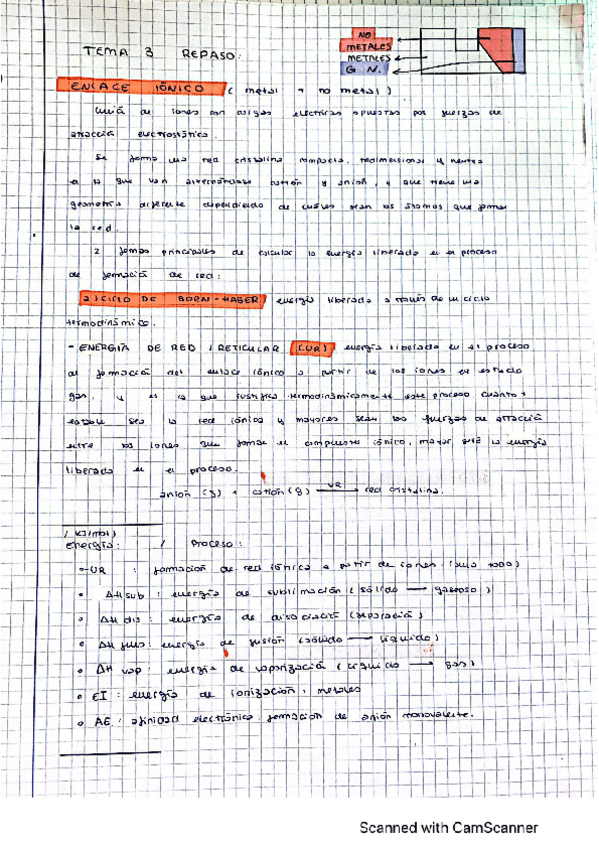 NO
METALES
METALES
G. N.
TEMA 3 REPASO:
ENLACE IÓNICO ( metal + no metal )
Unión de iones con cargas eléctricas opuestas por fuerzas de
atracción electrostática.
Se forma una red cristalina compacta, tridimensional y neutra
en la que van alternándose catión y anión, y que tiene una
geometría diferente dependiendo de cuáles sean los átomos que forman
la red.
2 formas principales de calcular la energía liberada en el proceso
de formación de red:
a) CICLO DE BORN-HABER: energía liberada a través de un ciclo
termodinámico.
- ENERGÍA DE RED / RETICULAR (UR): energía liberada en el proceso
de formación del enlace iónico a partir de los iones en estado
gas, y es la que justifica termodinámicamente este proceso cuanto +
estable sea la red iónica y mayores sean las fuerzas de atracción
entre los iones que forman el compuesto iónico, mayor será la energía
liberada en el proceso.
anión (g) + catión (g) UR → red cristalina.
(kJ/mol)
Energía: / Proceso:
UR : formación de red iónica a partir de iones
ΔH sub : energía de sublimación ( sólido → gaseoso )
ΔH dis : energía de disociación (separación)
ΔH fus : energía de fusión (sólido → líquido)
ΔH vap : energía de vaporización (líquido → gas)
EI : energía de ionización: metales
AE : afinidad electrónica: formación de anión monovalente.
Scanned with CamScanner